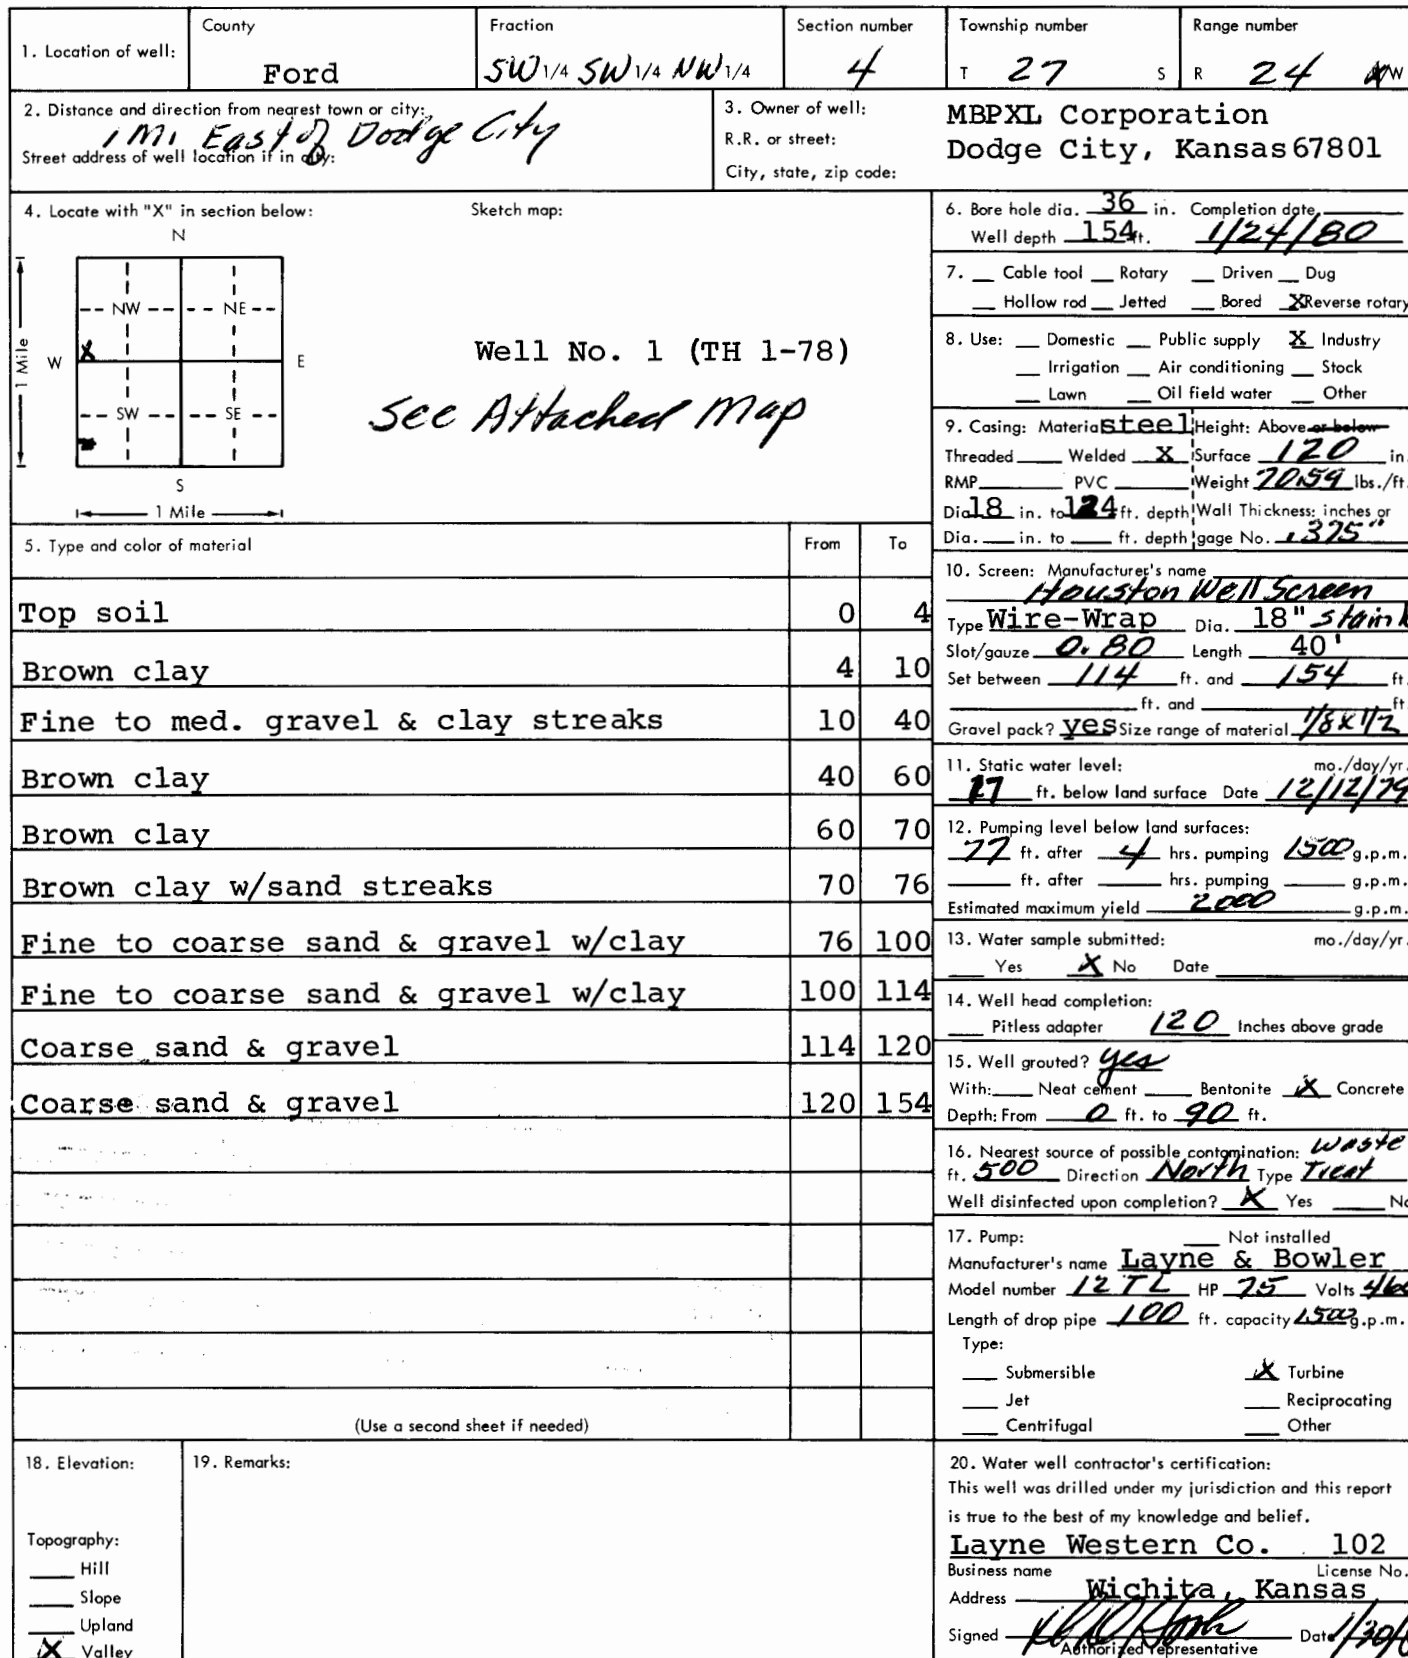 1. Location of well: County Ford Fraction SW 1/4 SW 1/4 NW 1/4 Section number 4 Township number T 27 S Range number R 24 W
2. Distance and direction from nearest town or city: 1 Mi East of Dodge City
Street address of well location if in city:
3. Owner of well: MBPXL Corporation
R.R. or street:
City, state, zip code: Dodge City, Kansas 67801
4. Locate with "X" in section below: Sketch map:
N
NW NE
1 Mile W X E
SW SE
S
1 Mile
Well No. 1 (TH 1-78)
See Attached Map
5. Type and color of material From To
Top soil 0 4
Brown clay 4 10
Fine to med. gravel & clay streaks 10 40
Brown clay 40 60
Brown clay 60 70
Brown clay w/sand streaks 70 76
Fine to coarse sand & gravel w/clay 76 100
Fine to coarse sand & gravel w/clay 100 114
Coarse sand & gravel 114 120
Coarse sand & gravel 120 154
(Use a second sheet if needed)
6. Bore hole dia. 36 in. Completion date
Well depth 154 ft. 1/24/80
7. Cable tool Rotary Driven Dug
Hollow rod Jetted Bored X Reverse rotary
8. Use: Domestic Public supply X Industry
Irrigation Air conditioning Stock
Lawn Oil field water Other
9. Casing: Material steel Height: Above or below
Threaded Welded X Surface 120 in.
RMP PVC Weight 70.59 lbs./ft.
Dia 18 in. to 124 ft. depth Wall Thickness: inches or
Dia. in. to ft. depth gage No. .375"
10. Screen: Manufacturer's name
Houston Well Screen
Type Wire-Wrap Dia. 18"
Slot/gauze 0.80 Length 40'
Set between 114 ft. and 154 ft.
ft. and ft.
Gravel pack? yes Size range of material 1/8 x 1/2
11. Static water level: mo./day/yr.
17 ft. below land surface Date 12/12/79
12. Pumping level below land surfaces:
77 ft. after 4 hrs. pumping 1500 g.p.m.
ft. after hrs. pumping g.p.m.
Estimated maximum yield 2000 g.p.m.
13. Water sample submitted: mo./day/yr.
Yes X No Date
14. Well head completion:
Pitless adapter 120 Inches above grade
15. Well grouted? yes
With: Neat cement Bentonite X Concrete
Depth: From 0 ft. to 90 ft.
16. Nearest source of possible contamination: Waste
ft. 500 Direction North Type Treat
Well disinfected upon completion? X Yes No
17. Pump: Not installed
Manufacturer's name Layne & Bowler
Model number 12 TL HP 75 Volts 460
Length of drop pipe 100 ft. capacity 1500 g.p.m.
Type:
Submersible X Turbine
Jet Reciprocating
Centrifugal Other
18. Elevation:
Topography:
Hill
Slope
Upland
X Valley
19. Remarks:
20. Water well contractor's certification:
This well was drilled under my jurisdiction and this report
is true to the best of my knowledge and belief.
Layne Western Co. 102
Business name License No.
Address Wichita, Kansas
Signed Date 1/30/
Authorized representative